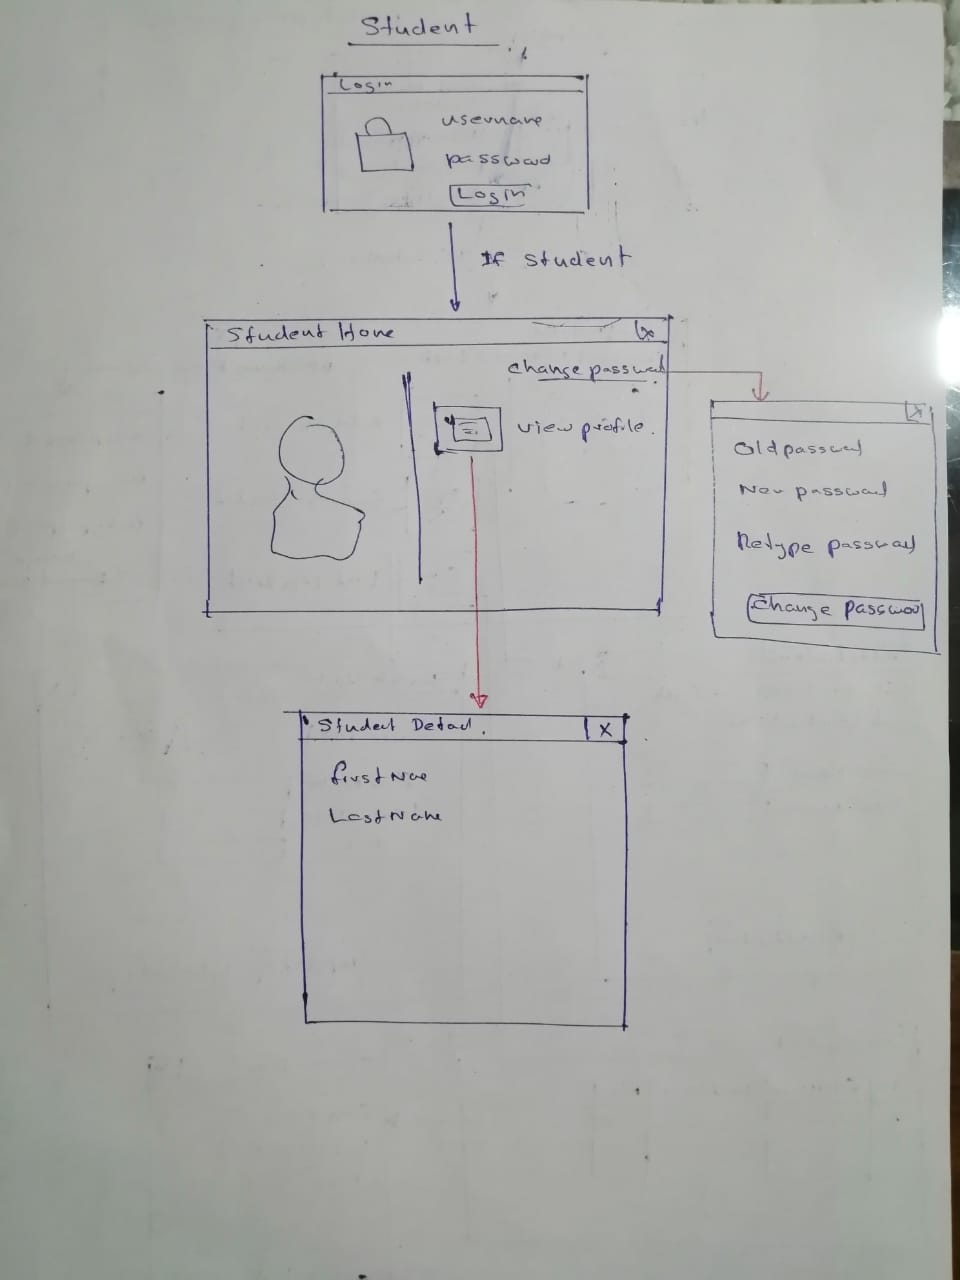 Student
Login
username
password
Login
If student
Student Home
x
change password
view profile.
x
Old password
New password
Retype password
Change Password
Student Detail.
X
first Name
Last Name